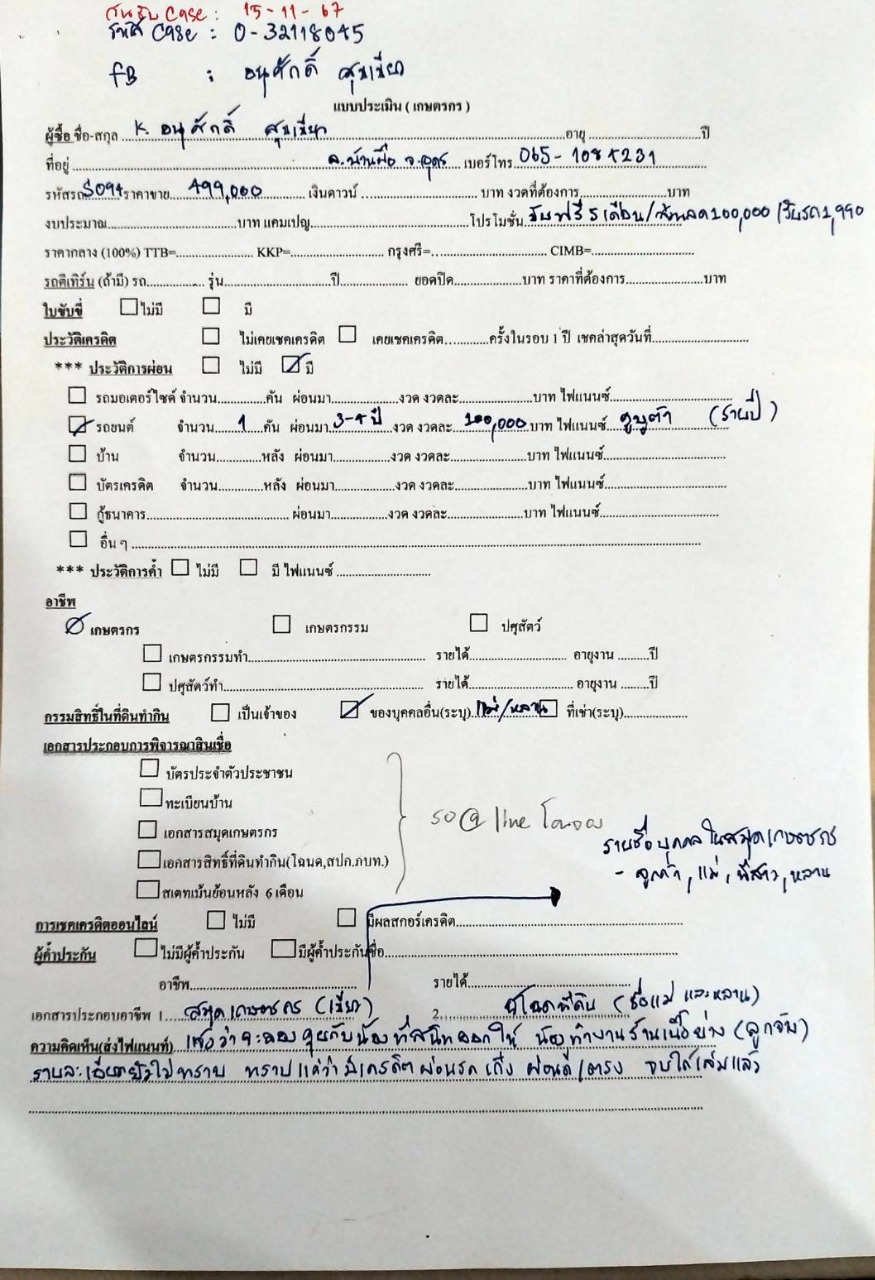 วันรับ Case : 15-11-67
รหัส Case : 0-32118045
fB : อนุศักดิ์ สุขเนียว
แบบประเมิน ( เกษตรกร )
ผู้ซื้อ ชื่อ-สกุล K. อนุศักดิ์ สุขเนียว อายุ ปี
ที่อยู่ อ.บ้านผือ จ.อุดร เบอร์โทร 065-1084231
รหัสรถ 5094 ราคาขาย 499,000 เงินดาวน์ บาท งวดที่ต้องการ บาท
งบประมาณ บาท แคมเปญ โปรโมชั่น ขับฟรี 5 เดือน/ส่วนลด 200,000 /รับรถ 2,990
ราคากลาง (100%) TTB= KKP= กรุงศรี= CIMB=
รถตีเทิร์น (ถ้ามี) รถ รุ่น ปี ยอดปิด บาท ราคาที่ต้องการ บาท
ใบขับขี่ ไม่มี มี
ประวัติเครดิต ไม่เคยเชคเครดิต เคยเชคเครดิต ครั้งในรอบ 1 ปี เชคล่าสุดวันที่
*** ประวัติการผ่อน ไม่มี มี
รถมอเตอร์ไซด์ จำนวน คัน ผ่อนมา งวด งวดละ บาท ไฟแนนซ์
รถยนต์ จำนวน 1 คัน ผ่อนมา 3-4 ปี งวด งวดละ 200,000 บาท ไฟแนนซ์ คูโบต้า (รายปี)
บ้าน จำนวน หลัง ผ่อนมา งวด งวดละ บาท ไฟแนนซ์
บัตรเครดิต จำนวน หลัง ผ่อนมา งวด งวดละ บาท ไฟแนนซ์
กู้ธนาคาร ผ่อนมา งวด งวดละ บาท ไฟแนนซ์
อื่น ๆ
*** ประวัติการค้ำ ไม่มี มี ไฟแนนซ์
อาชีพ
เกษตรกร เกษตรกรรม ปศุสัตว์
เกษตรกรรมทำ รายได้ อายุงาน ปี
ปศุสัตว์ทำ รายได้ อายุงาน ปี
กรรมสิทธิ์ในที่ดินทำกิน เป็นเจ้าของ ของบุคคลอื่น(ระบุ) แม่/หลาน ที่เช่า(ระบุ)
เอกสารประกอบการพิจารณาสินเชื่อ
บัตรประจำตัวประชาชน
ทะเบียนบ้าน
เอกสารสมุดเกษตรกร
รอ @ line
รายชื่อบุคคลในสมุดเกษตรกร
เอกสารสิทธิ์ที่ดินทำกิน(โฉนด,สปก.ภบท.)
- ลูกค้า, แม่, พี่สาว, หลาน
สเตทเม้นย้อนหลัง 6 เดือน
การเชคเครดิตออนไลน์ ไม่มี มีผลสกอร์เครดิต
ผู้ค้ำประกัน ไม่มีผู้ค้ำประกัน มีผู้ค้ำประกันชื่อ
อาชีพ รายได้
เอกสารประกอบอาชีพ 1. สมุดเกษตรกร (เขียว) 2. โฉนดที่ดิน (ชื่อแม่ และหลาน)
ความคิดเห็น(ส่งไฟแนนท์) ว่าจะลองคุยกับน้องที่สนิทออกให้ น้องทำงานร้านเนื้อย่าง (ลูกจ้าง)
รายละเอียดยังไม่ทราบ ทราบแค่ว่ามีเครดิตผ่อนรถเก๋ง ผ่อนดี/ตรง จบได้เล่มแล้ว